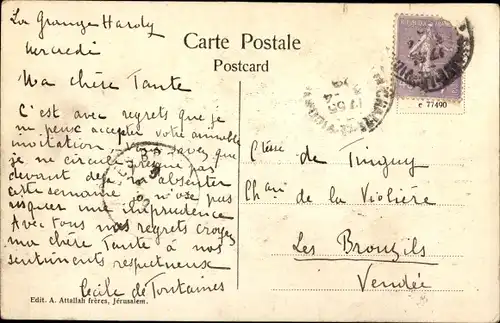 La Grange Hardy
Mercredi
Carte Postale
Postcard
Ma chère Tante
C'est avec regrets que je
ne peux accepter votre aimable
invitation vous savez que
je ne circule presque pas
devant déjà m'absenter
cette semaine je n'ose pas
risquer une imprudence
Avec tous mes regrets croyez
ma chère Tante à nos
sentiments respectueux
Cécile de Fontaines
Edit. A. Attallah frères, Jérusalem.
e 77490
Ctesse de Tinguy
Chau
de la Violière
Les Brouzils
Vendée